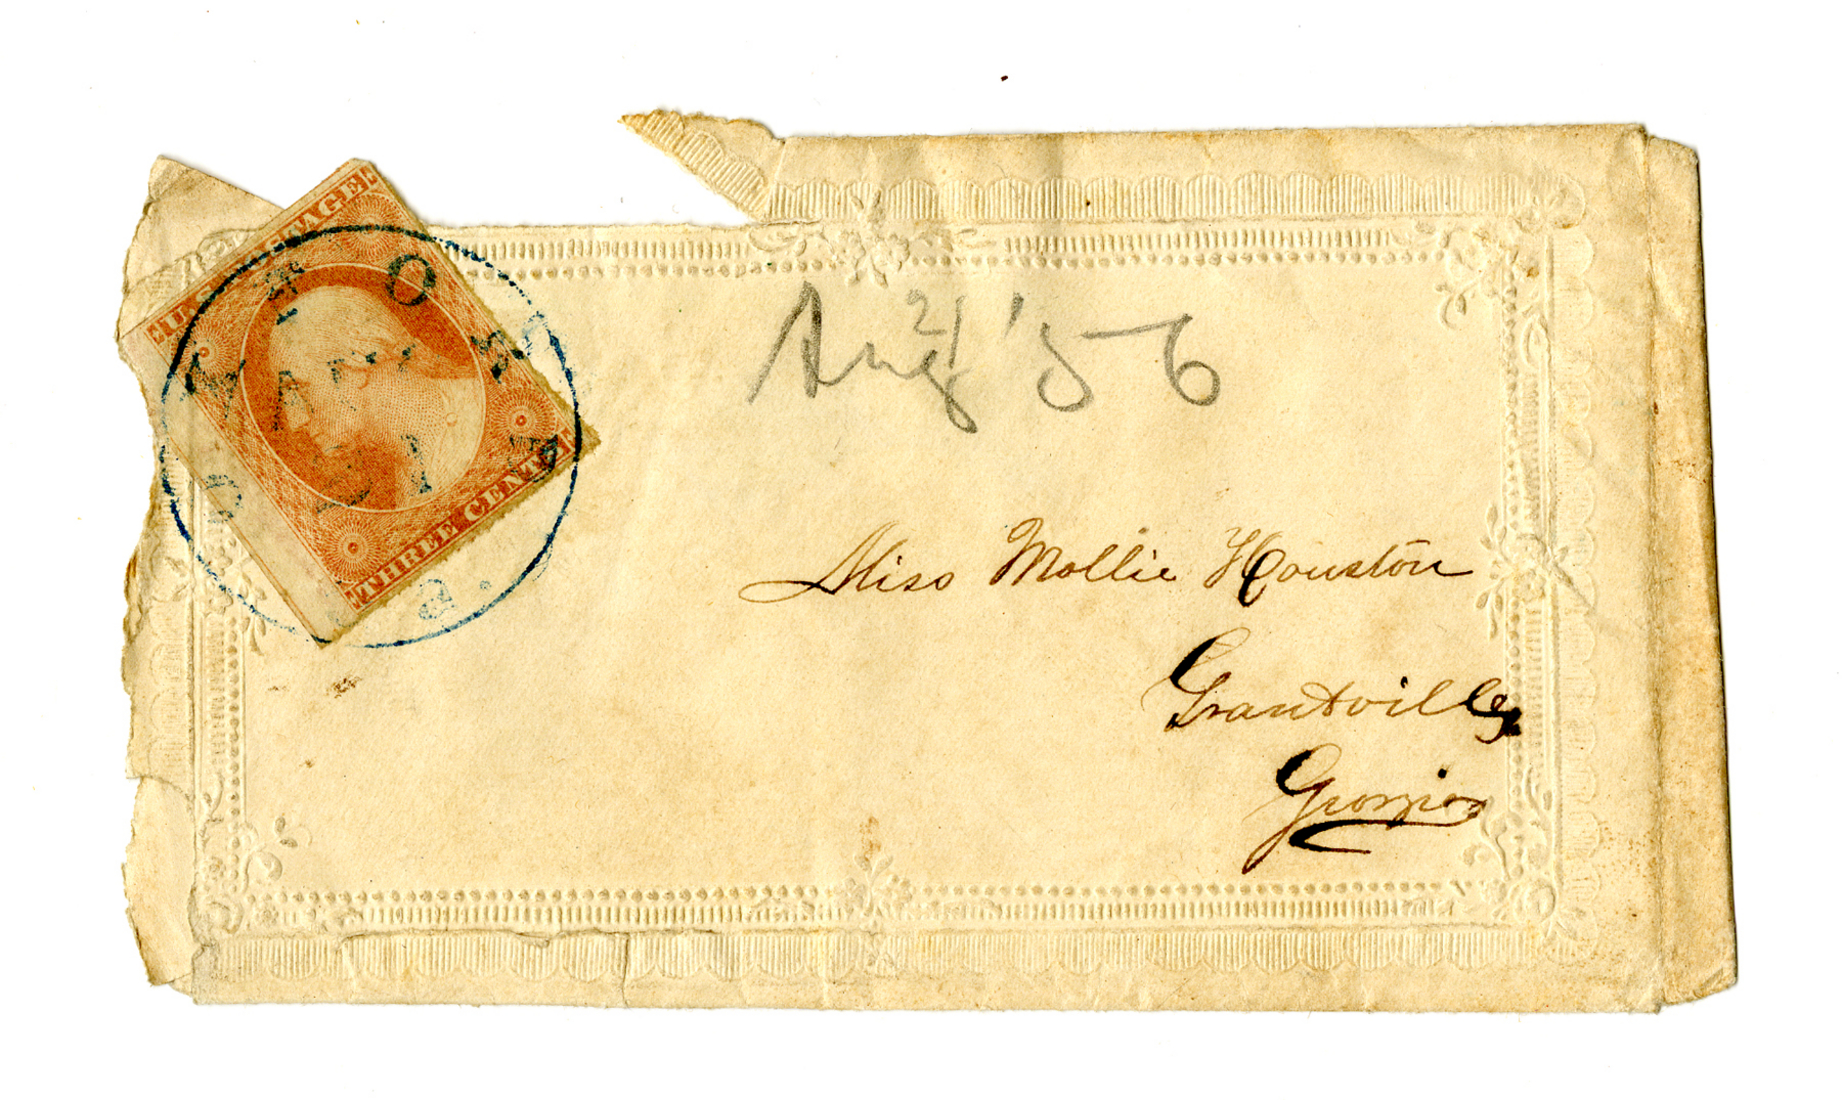 U.S. POSTAGE
THREE CENTS
21
Aug '56
Miss Mollie Houston
Grantville
Georgia